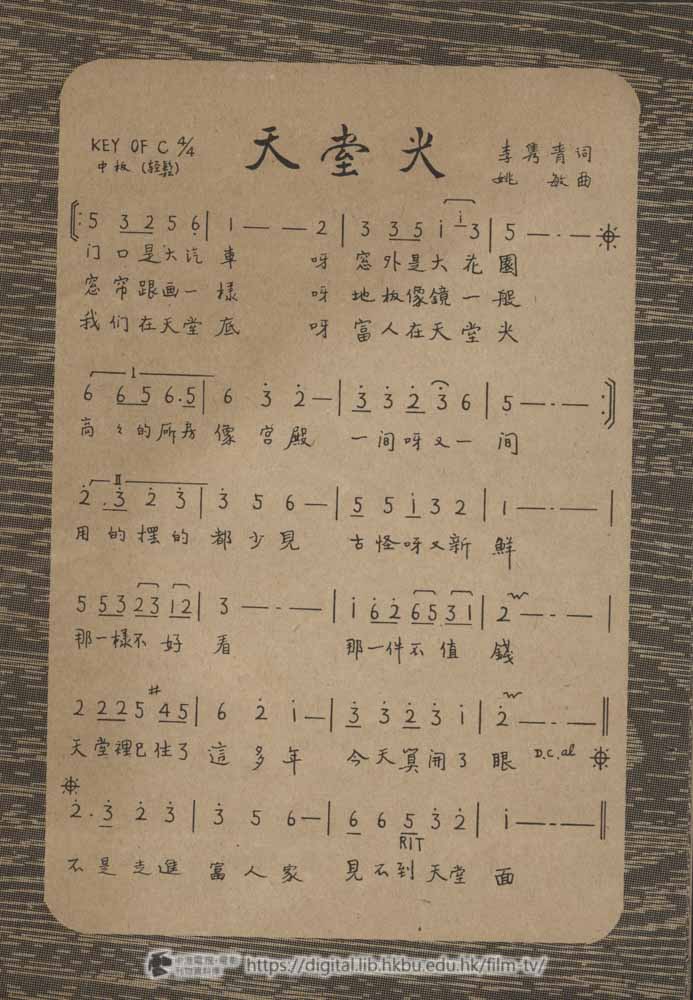 天堂火
KEY OF C 4/4
中板 (轻鬆)
李雋青词
姚 敏曲
5 3 2 5 6 | 1 — — 2 | 3 3 5 i i 3 | 5 — · —
门口是大汽車 呀 窓外是大花園
窓帘跟画一樣 呀 地板像鏡一般
我们在天堂底 呀 富人在天堂火
I
6 6 5 6 . 5 | 6 3 2 — | 3 3 2 3 6 | 5 — · — :
高々的厛房 像宮殿 一间呀又一间
II
2 . 3 2 3 | 3 5 6 — | 5 5 i 3 2 | 1 — · — |
用的摆的 都少見 古怪呀又新鮮
5 5 3 2 3 1 2 | 3 — · — | i 6 2 6 5 3 1 | 2 — · —
那一樣不好看 那一件不值錢
2 2 2 5 #4 5 | 6 2 i — | 3 3 2 3 i | 2 — · — ||
天堂裡已住了這多年 今天算開了眼 D.C. al
2 . 3 2 3 | 3 5 6 — | 6 6 5 3 2 | i — · — ||
RIT
不是走進富人家 見不到天堂面
https://digital.lib.hkbu.edu.hk/film-tv/